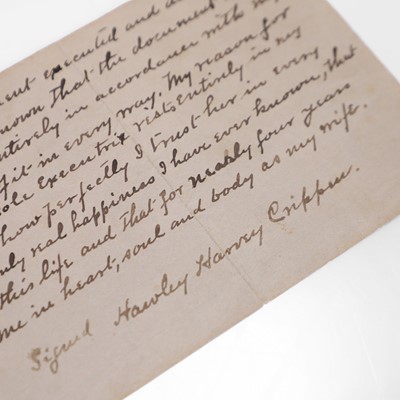 ent executed and
nown that the document
ntirely in accordance with my
fit in every way. My reason for
ole Executrix rests entirely in my
how perfectly I trust her in every
nly real happiness I have ever known, that
this life and that for nearly four years
me in heart, soul and body as my wife.
Signed Hawley Harvey Crippen.